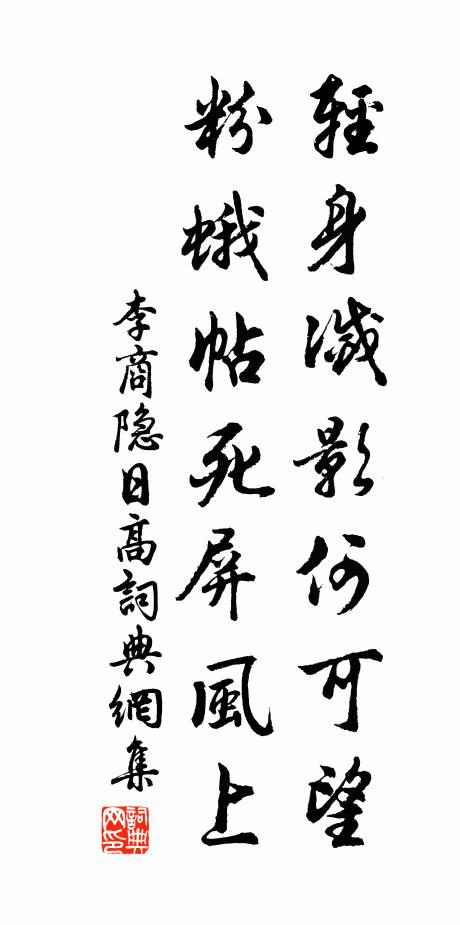 輕身滅影何可望
粉蛾帖死屏風上
李商隐日高詞典網集
詞典网印